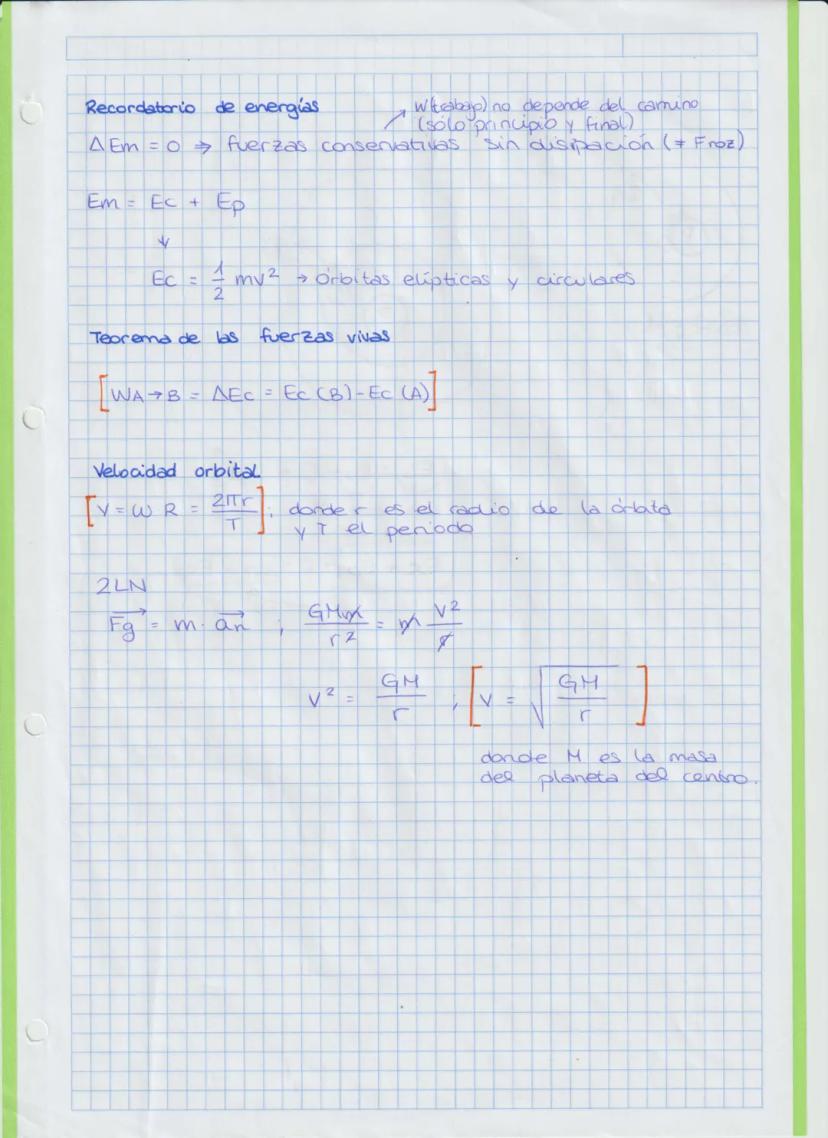 Recordatorio de energías
W(trabajo) no depende del camino
(sólo principio y final)
ΔEm = 0 ⇒ fuerzas conservativas sin disipación (≠ Froz)
Em = Ec + Ep
↓
Ec = 1/2 mv² → órbitas elípticas y circulares
Teorema de las fuerzas vivas
[WA→B = ΔEc = Ec (B) - Ec (A)]
Velocidad orbital
[V = ω R = 2πr/T]; donde r es el radio de la órbita
y T el periodo
2LN
Fg = m · an ; GMm/r² = m V²/r
V² = GM/r ; [V = √(GM/r)]
donde M es la masa
del planeta del centro.